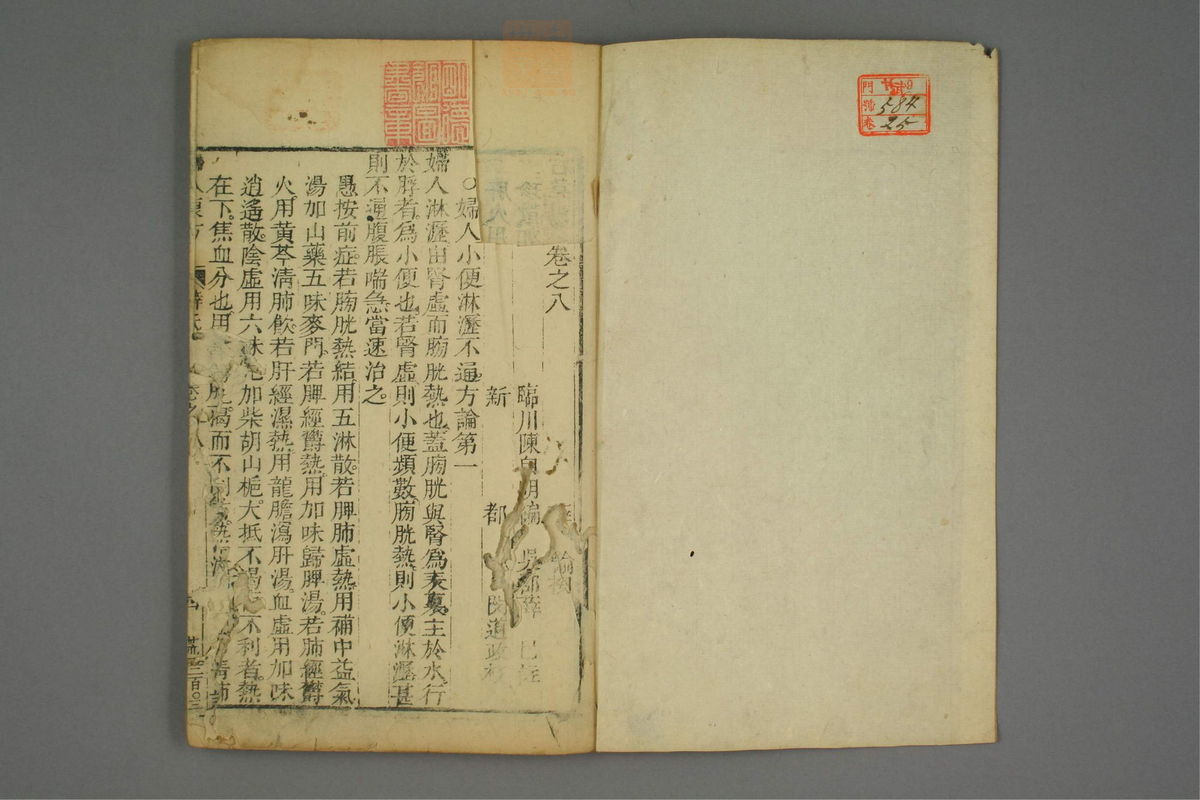 門 號 卷
584
25
明德館圖書章
卷之八
臨川陳自明編 吳郡薛 己註
新 都
○婦人小便淋瀝不通方論第一
婦人淋瀝由腎虛而膀胱熱也蓋膀胱與腎爲表裏主於水行
於脬者爲小便也若腎虛則小便頻數膀胱熱則小便淋瀝甚
則不通腹脹喘急當速治之
愚按前症若膀胱熱結用五淋散若脾肺虛熱用補中益氣
湯加山藥五味麥門若脾經鬱熱用加味歸脾湯若肺經鬱
火用黃芩清肺飲若肝經濕熱用龍膽瀉肝湯血虛用加味
逍遙散陰虛用六味 加柴胡山梔大抵不渴 不利者熱
在下焦血分也用 渴而不利 熱 清肺
卷之八